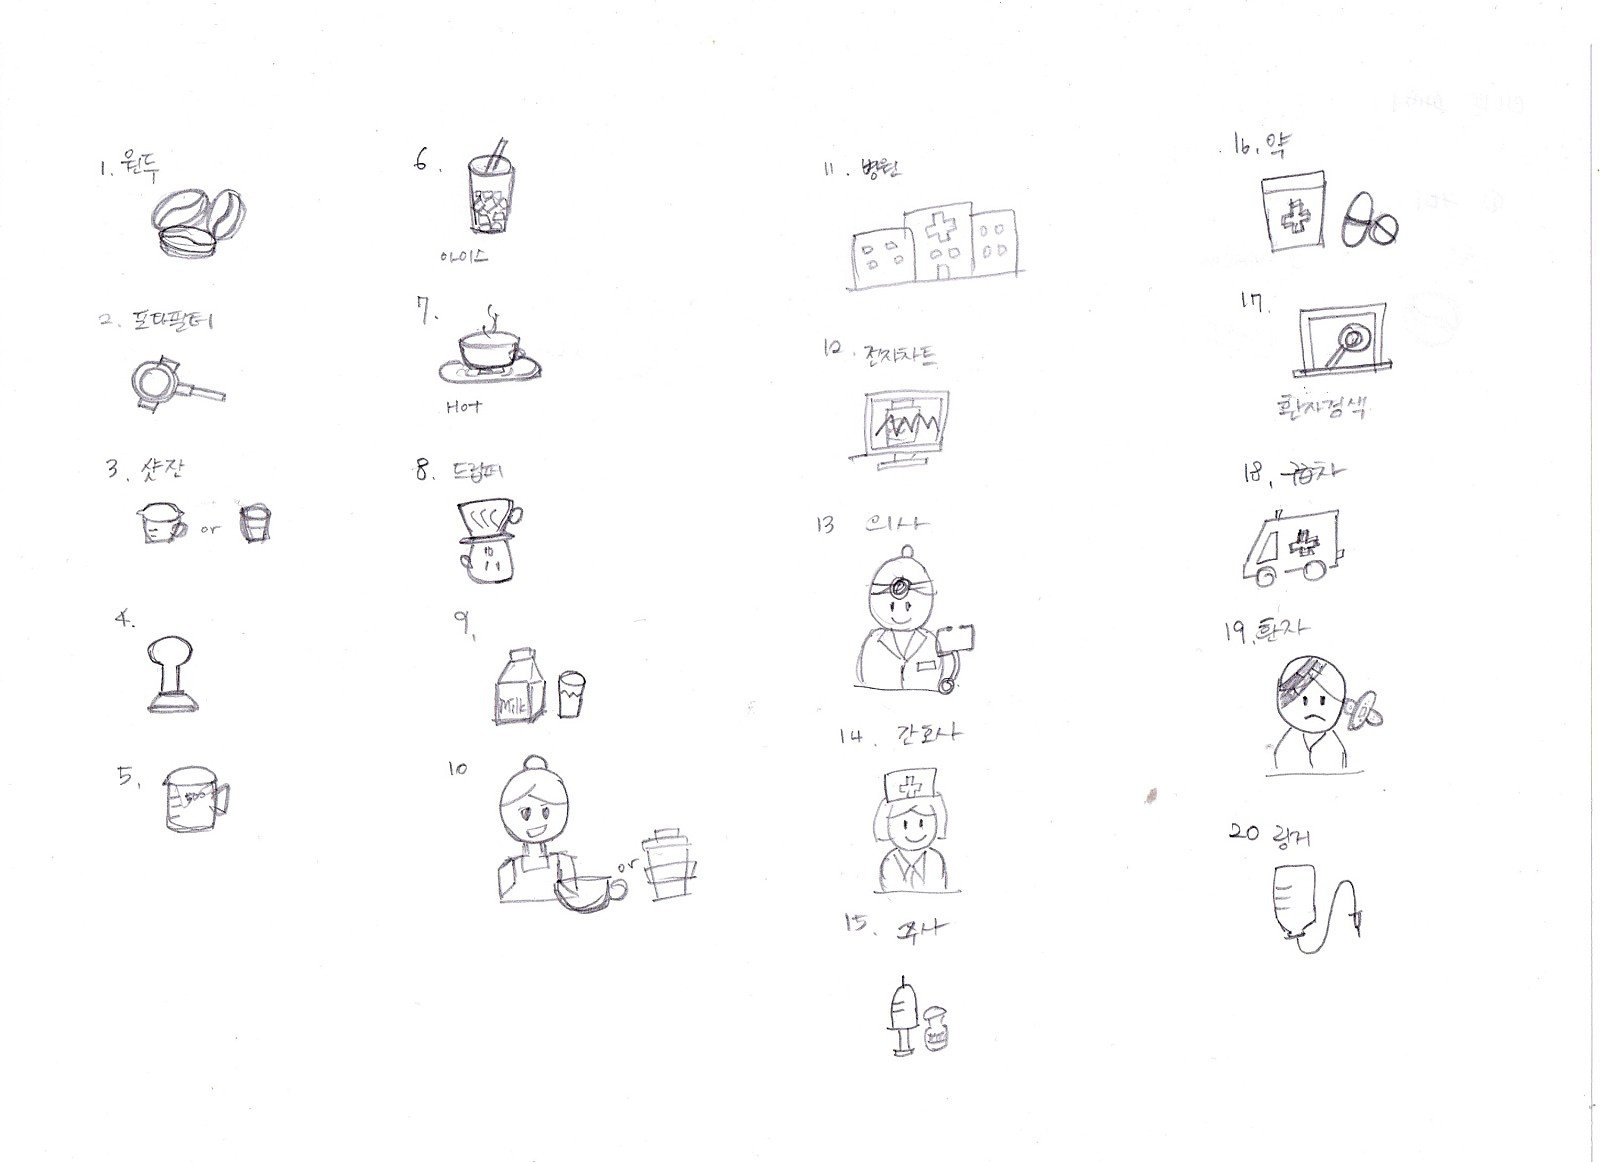 1. 원두
2. 포타필터
3. 샷잔
or
4.
5.
500
6.
아이스
7.
Hot
8. 드립퍼
9.
Milk
10
or
11. 병원
12. 전자차트
13 의사
14. 간호사
15. 주사
16. 약
17.
환자검색
18. 구급차
19. 환자
20 링거